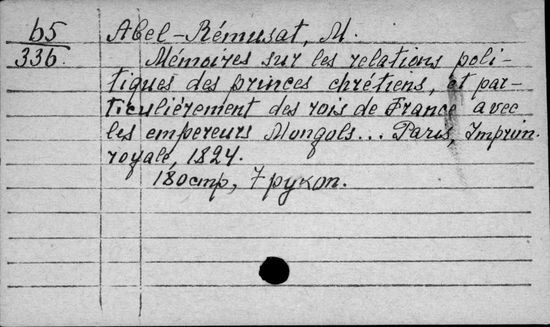 b5 Abel-Rémusat, M.
336. Mémoires sur les relations poli-
tiques des princes chrétiens, et par-
ticulièrement des rois de France avec
les empereurs Mongols... Paris, Imprim.
royale, 1824.
180 стр, 7 рукоп.